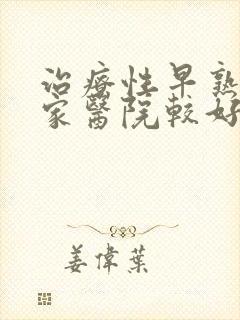 治療性早熟
家醫院較好
姜偉葉